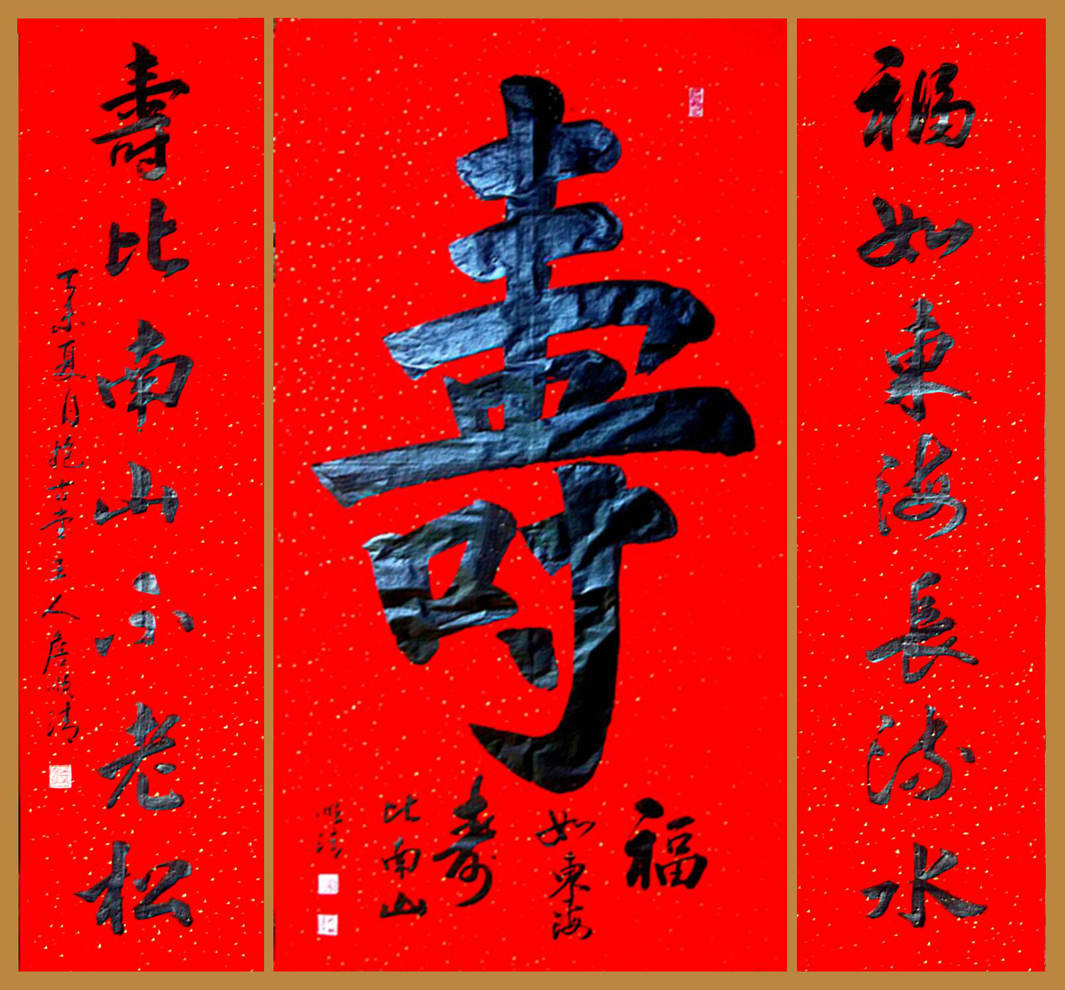 福如東海長流水
壽
福
如東海
壽
比南山
順清
壽比南山不老松
丁亥夏月抱古堂主人詹順清